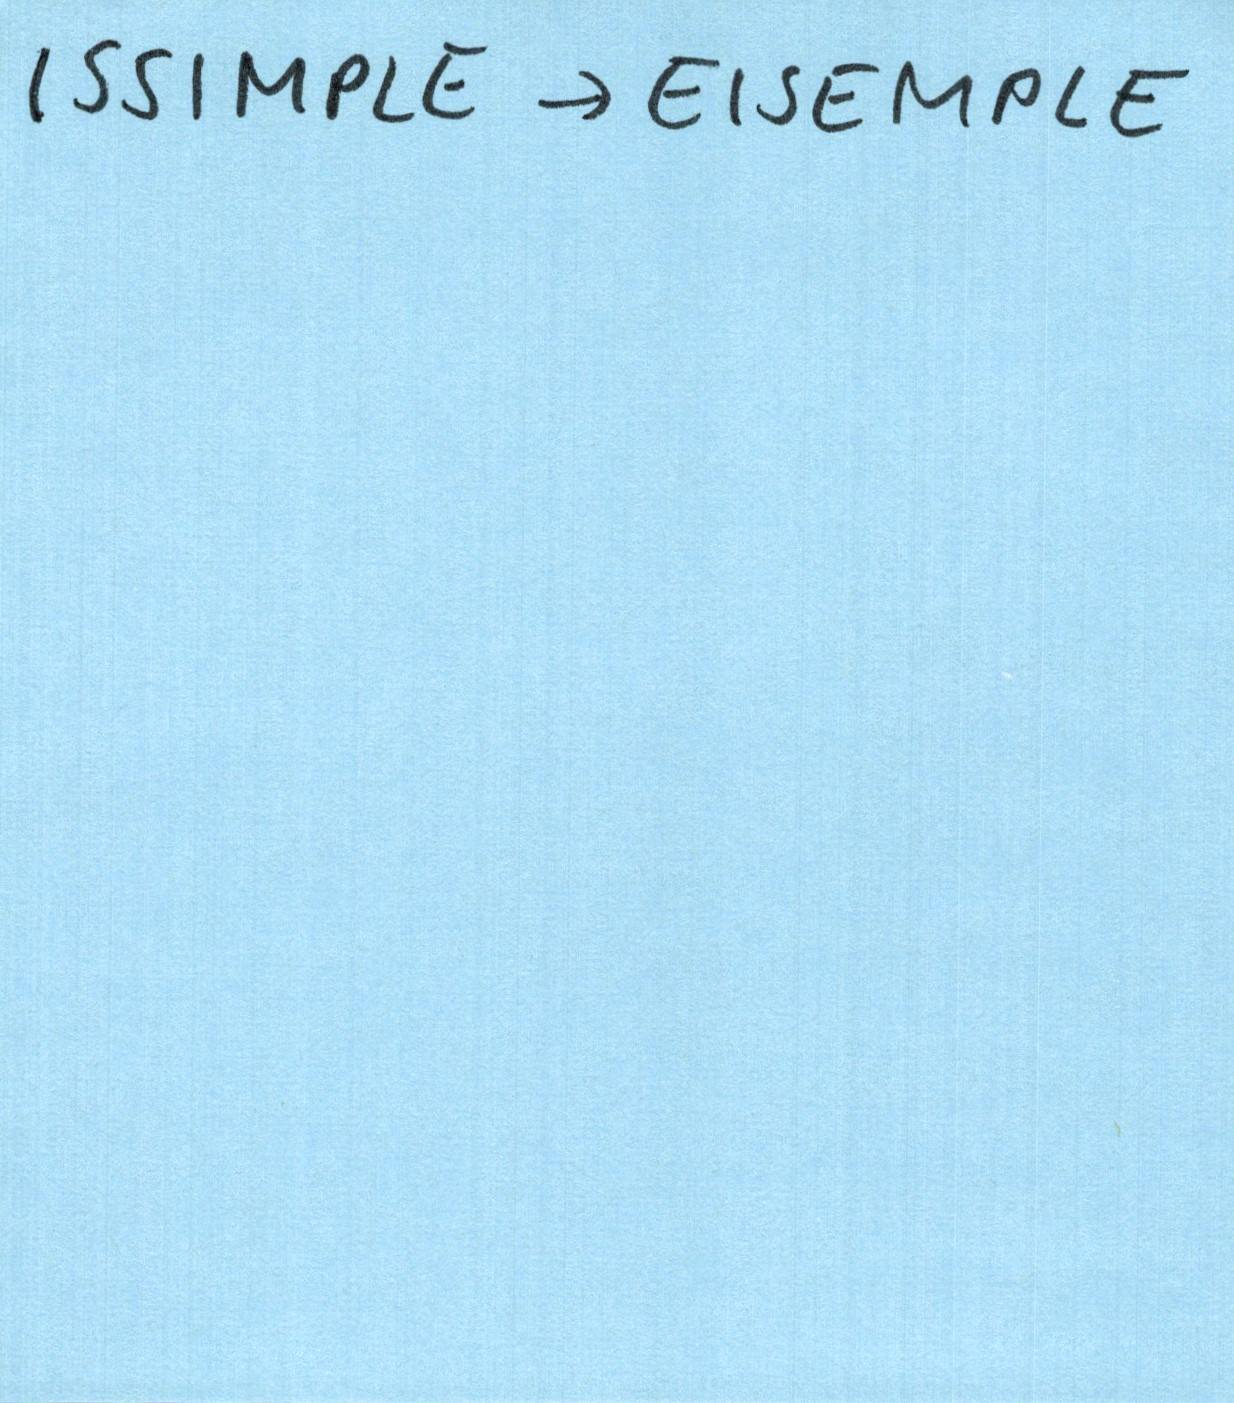 ISSIMPLE → EISEMPLE